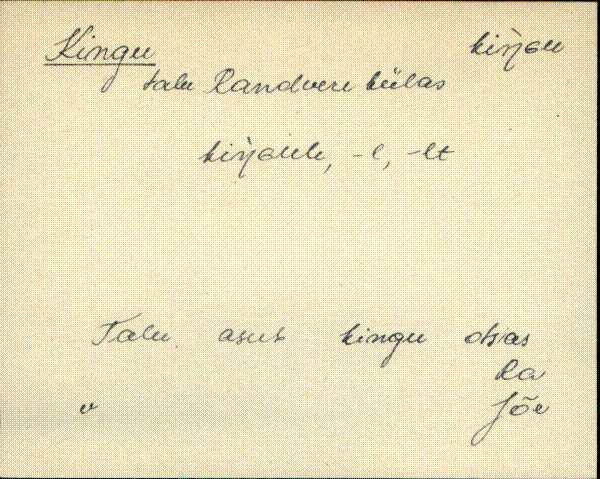 Kingu kiŋ̀ɢu
talu Randvere külas
kiŋ̀ɢule, -l, -lt
Talu asub kingu otsas
Ra
v Jõe